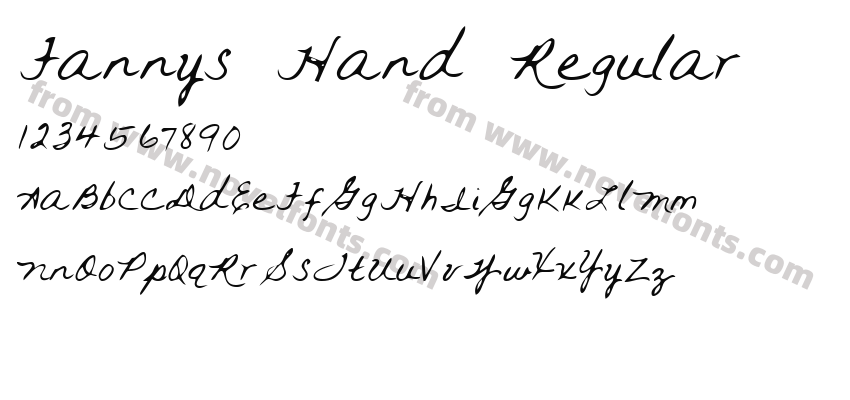 Fannys Hand Regular
1234567890
AaBbCcDdEeFfGgHhIiGgKkLlMm
NnOoPpQqRrSsTtUuVvYwXxYyZz
from www.novelfonts.com
from www.novelfonts.com